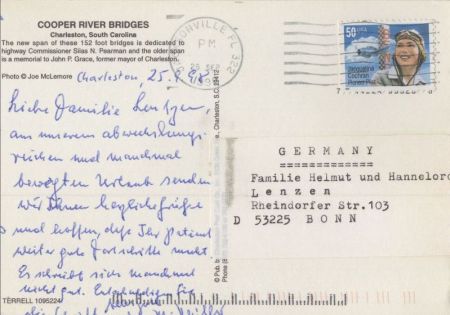 COOPER RIVER BRIDGES
Charleston, South Carolina
The new span of these 152 foot bridges is dedicated to
highway Commissioner Silas N. Pearman and the older span
is a memorial to John P. Grace, former mayor of Charleston.
Photo © Joe McLemore
Charleston, 25.9.98
Liebe Familie Lenzen,
aus unserem abwechslungs-
reichen und manchmal
bewegten Urlaub senden
wir Ihnen herzliche Grüße
und hoffen, daß Ihr Patient
weiter gute Fortschritte macht.
Es schreibt sich manchmal
nicht gut. Entschuldigen Sie
die
TERRELL 1095224
© Pub. b
Photo (
Charleston, S.C. 29412
ONVILLE FL 322
PM
SEP
1998
50
USA
Jacqueline
Cochran
Pioneer Pilot
GERMANY
============
Familie Helmut und Hannelor
Lenzen
Rheindorfer Str.103
D 53225 BONN